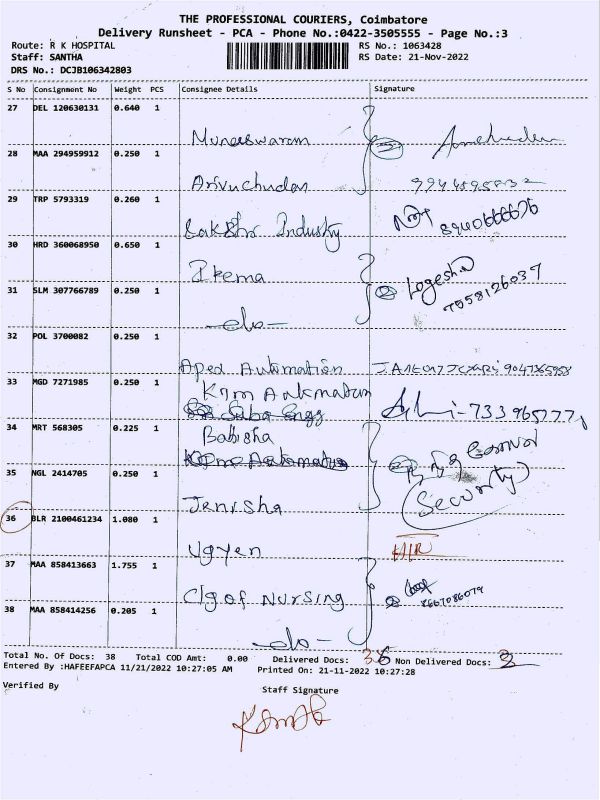 THE PROFESSIONAL COURIERS, Coimbatore
Delivery Runsheet - PCA - Phone No.:0422-3505555 - Page No.:3
Route: R K HOSPITAL
Staff: SANTHA
DRS No.: DCJB106342803
RS No.: 1063428
RS Date: 21-Nov-2022
S No Consignment No Weight PCS Consignee Details Signature
27 DEL 120630131 0.640 1
Muneeswaram
28 MAA 294959912 0.250 1
Arivuchudan
29 TRP 5793319 0.260 1
Lakshmi Industry
30 HRD 360068950 0.650 1
Ikema Logesha
31 SLM 307766789 0.250 1
7558126037
-do-
32 POL 3700082 0.250 1
Apex Automation
33 MGD 7271985 0.250 1
34 MRT 568305 0.225 1
Babisha
35 NGL 2414705 0.250 1
Jenisha (Security)
36 BLR 2100461234 1.080 1
Ugyen
37 MAA 858413663 1.755 1
Clg of Nursing 8667086079
38 MAA 858414256 0.205 1
-do-
Total No. Of Docs: 38 Total COD Amt: 0.00 Delivered Docs: Non Delivered Docs:
Entered By :HAFEEFAPCA 11/21/2022 10:27:05 AM Printed On: 21-11-2022 10:27:28
Verified By Staff Signature